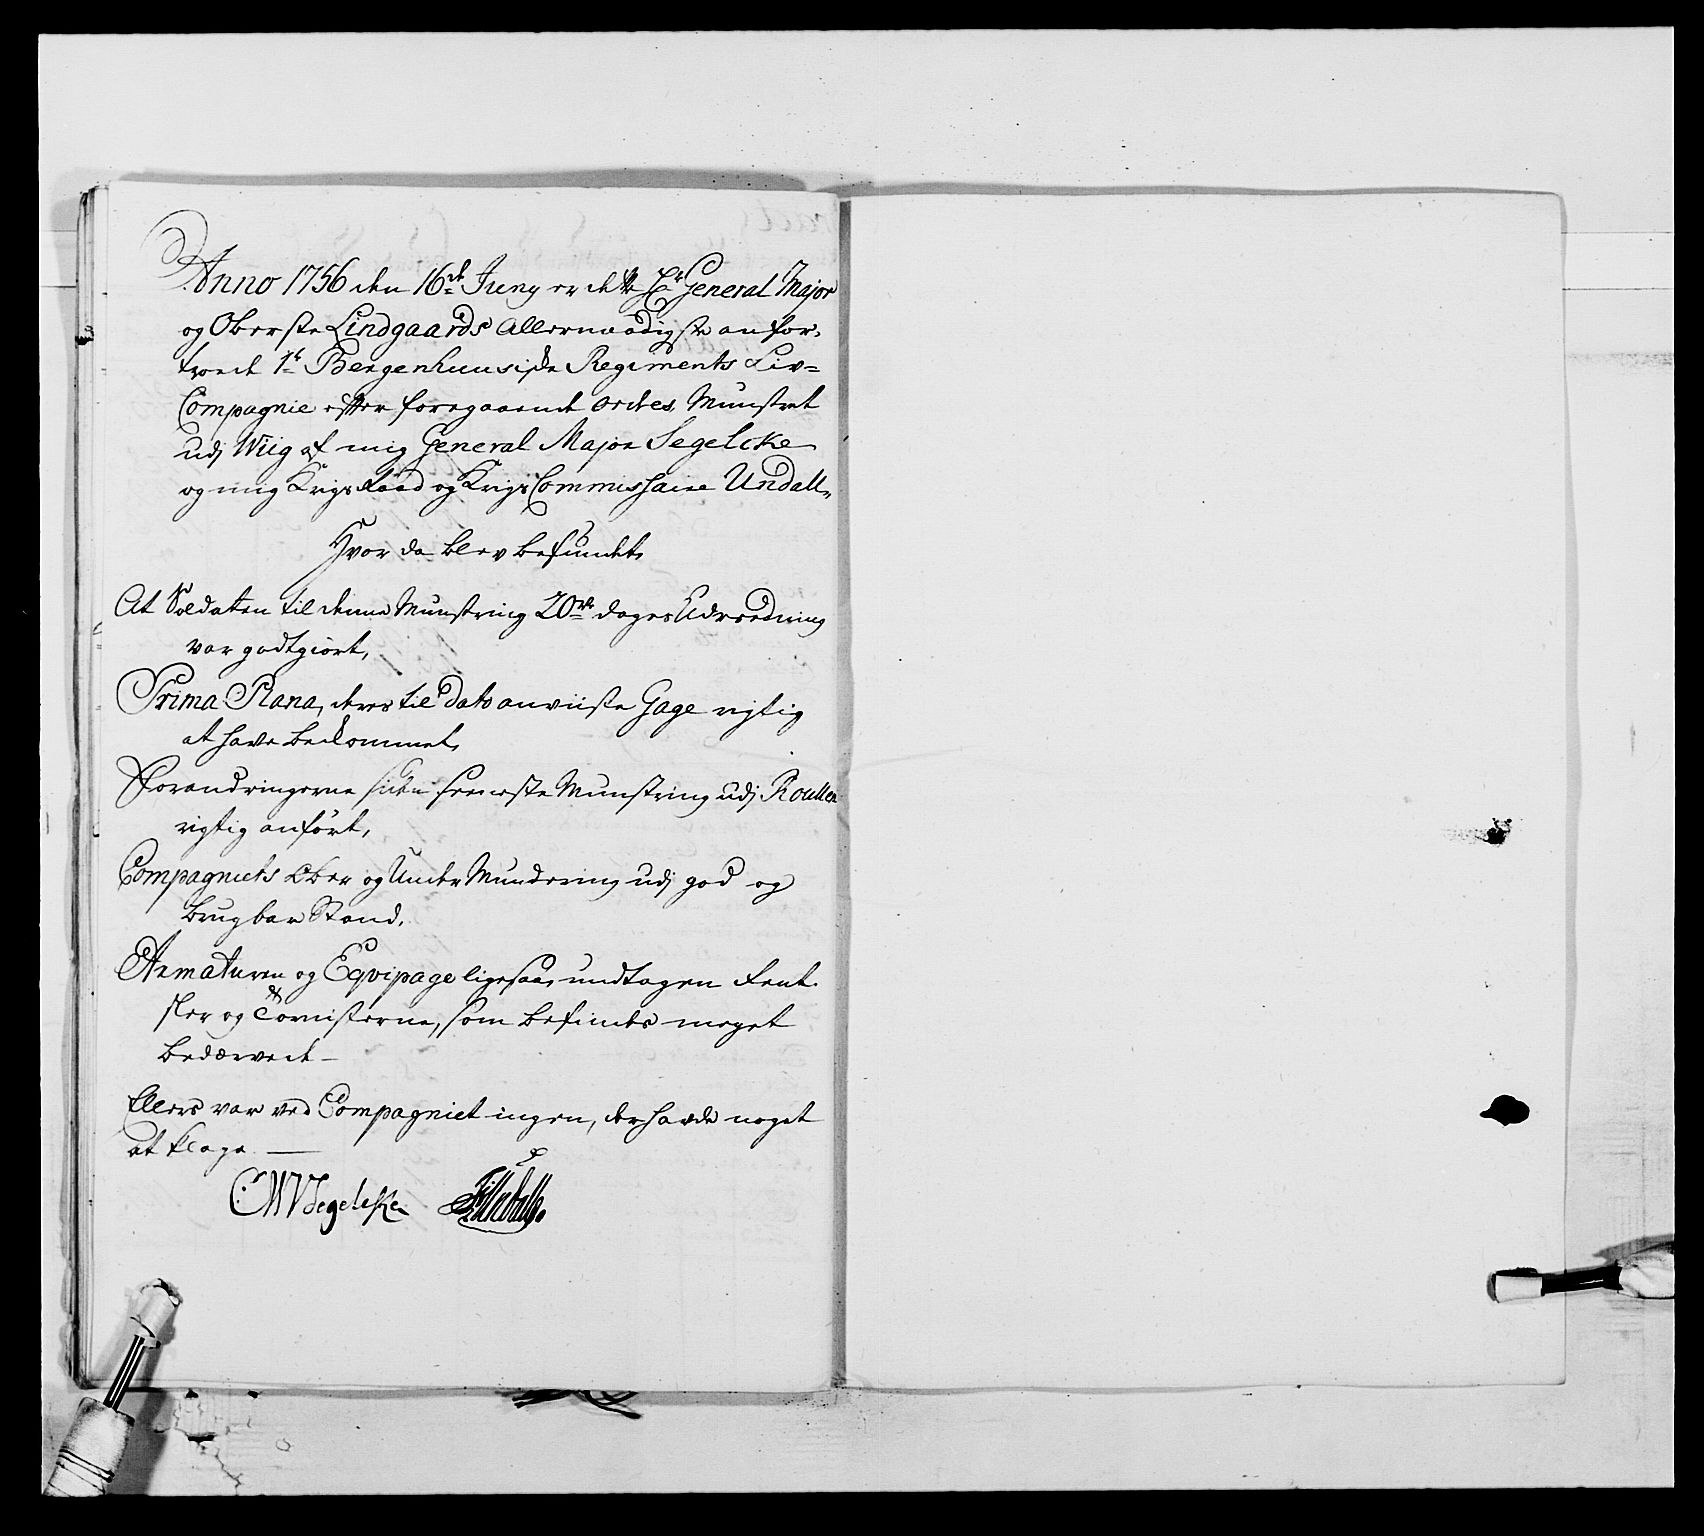 Anno 1756 den 16de Juny er dette Hr General Major
og Oberste Lindgaards Allernaadigste anfor,
troede 1te Bergenhuusiske Regiments Liv=
Compagnie efter foregaaende Ordres, Munstret
udj Wiig af mig General Major Segelcke
og mig Krigs Raad og Krigs Commissaire Undall,,
Hvor da blev befundet,
At Soldaten til denne Munstring 20ve dages Udreedning
var godtgiort,
Prima Plana, deres til Dato anviiste Gage rigtig
at have bekommet,
Forandringerne siden seeneste Munstring udj Roullen
rigtig anført,
Compagniets Ober og Under Mundering udj god og
brugbar Stand,
Armaturen og Eqvipage ligesaa, undtagen
og Tornisterne, som befindes meget
bedærvede –
Ellers var ved Compagniet ingen, der havde noget
at klage. —
CMVSegelcke Undall.